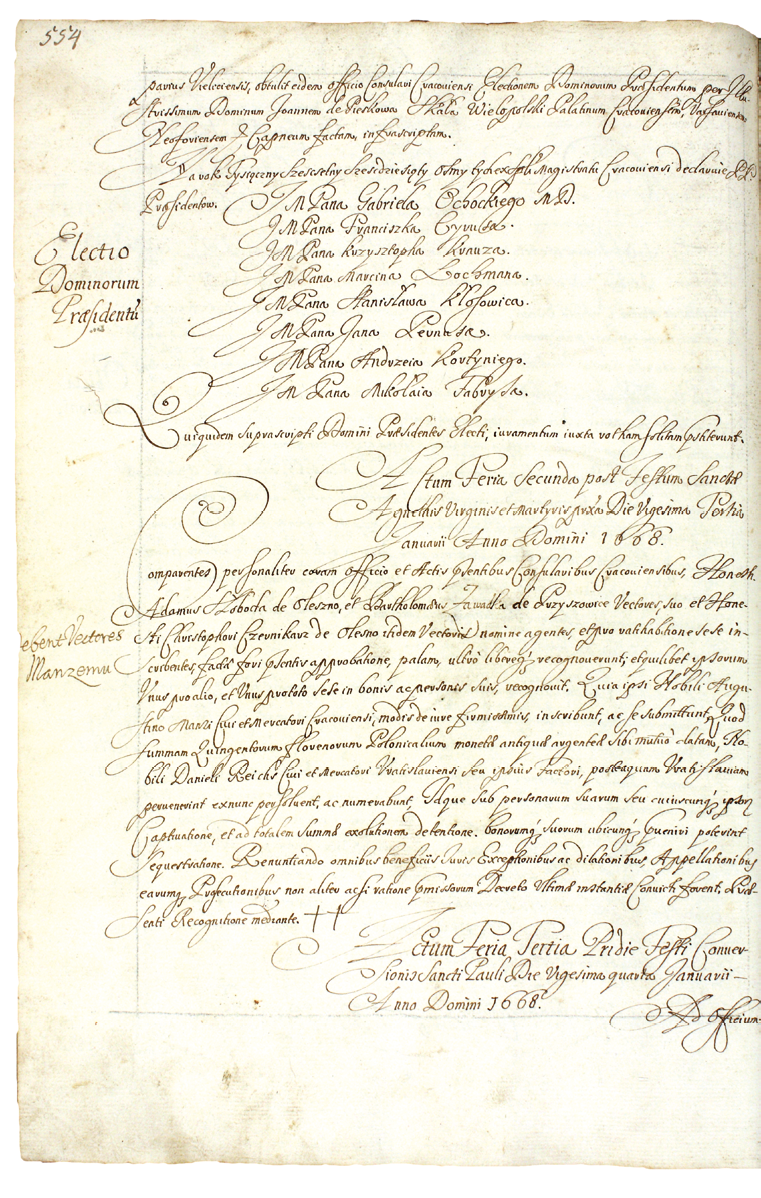 554
parcus Vieliciensis, obtulit eidem officio Consulari Cracoviensi Electionem Dominorum Præsidentum per Illu-
strissimum Dominum Joannem de Pieskowa Skała Wielopolski Palatinum Cracoviensem, Varsaviensem
Neoforiensem & Capneum factam, infrascriptam.
Na rok Tysiączny Szescsetny Szescdziesiąty Osmy tych Magistratu Cracoviensi declaruie PP.
Præsidentow. JM Pana Gabriela Ochockiego M.D.
JM Pana Franciszka Cyrusa.
JM Pana Krzysztopha Krauza.
JM Pana Marcina Lochmana.
JM Pana Stanisława Kłosowica.
JM Pana Jana Pernusa.
JM Pana Andrzeia Kortyniego.
JM Pana Mikołaia Fabrysa.
Electio
Dominorum
Præsidentū
Quiquidem suprascripti Domini Præsidentes Electi, iuramentum iuxta rotham solitam pstiterunt.
Actum Feria Secunda post Festum Sanctæ
Agnethis Virginis et Martyris prxa Die Vigesima Tertia
Januarii Anno Domini 1668.
Comparentes personaliter coram officio et Actis pntibus Consularibus Cracoviensibus, Honesti
Adamus Słoboda de Oleszno, et Bartholomæus Zawatka de Przyszowice Vectores, suo et Hone-
sti Christophori Czernikarz de Olesno itidem Vectoris nomine agentes, et pro ratihabitione sese in-
scribentes, factæ fori psentis approbatione, palam, ultro libereq recognoverunt; et quilibet ipsorum
Unus pro alio, et Unus pro toto sese in bonis ac personis suis, recognovit. Quia ipsi Nobili Augu-
stino Manzi Civi et Mercatori Cracoviensi, modis de iure firmissimis, inscribunt, ac se submittunt, Quod
summam Quingentorum florenorum Polonicalium monetæ antiquæ argenteæ sibi mutuò datam, No-
bili Danieli Reichs Civi et Mercatori Vratislaviensi seu ipsius Factori, posteaquam Vratislaviam
pervenerint exnunc persoluent, ac numerabunt, Idque sub personarum suarum seu cuiuscunq ipsorum
Captivatione, et ad totalem summæ exolutionem detentione. bonorumq suorum ubicunq pveniri poterint
Sequestratione. Renuntiando omnibus beneficiis Iuris Exceptionibus ac dilationibus Appellationibus
earumq Prosecutionibus non aliter acsi ratione pmissorum Decreto Ultimæ instantiæ Convicti forent. Præ-
senti Recognitione mediante.
debent Vectores
Manzemu
Actum Feria Tertia Pridie Festi Conver-
sionis Sancti Pauli Die Vigesima quarta Januarii
Anno Domini 1668.
Ad Officium